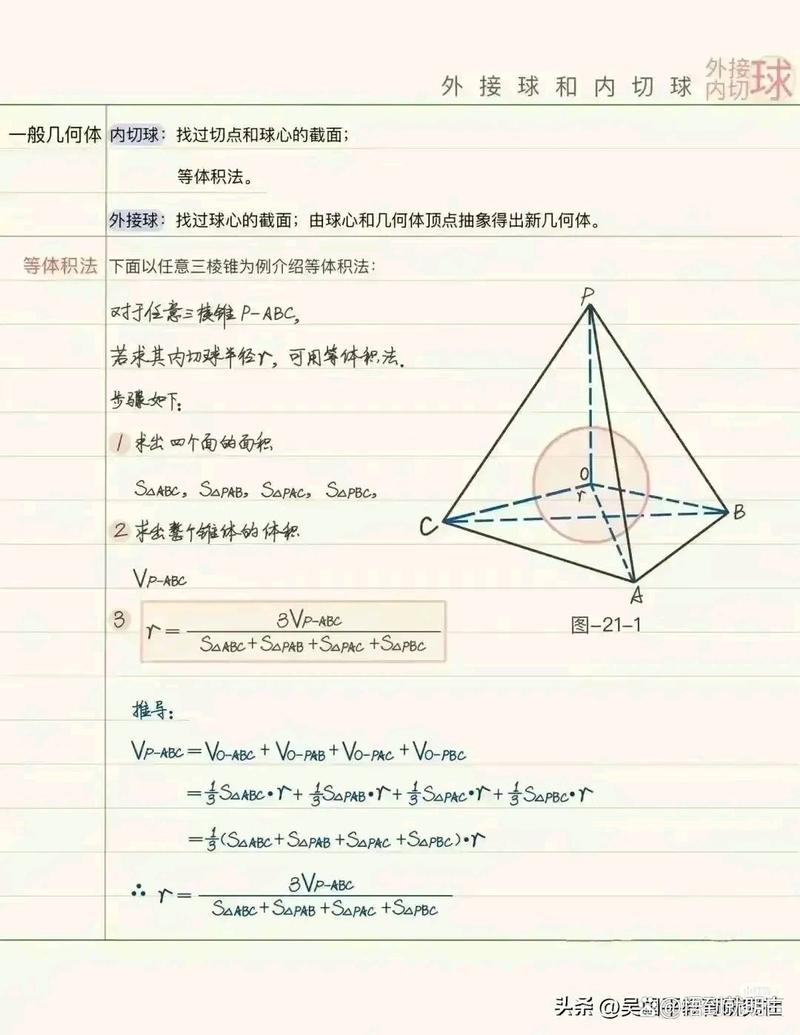 外接球和内切球
外接
内切
球
一般几何体
内切球：找过切点和球心的截面；
等体积法。
外接球：找过球心的截面；由球心和几何体顶点抽象得出新几何体。
等体积法
下面以任意三棱锥为例介绍等体积法：
对于任意三棱锥P-ABC,
若求其内切球半径r, 可用等体积法.
步骤如下:
1 求出四个面的面积
S△ABC, S△PAB, S△PAC, S△PBC,
2 求出整个锥体的体积
VP-ABC
3 r = 3VP-ABC / (S△ABC+S△PAB+S△PAC+S△PBC)
P
O
r
C
B
A
图-21-1
推导:
VP-ABC = VO-ABC + VO-PAB + VO-PAC + VO-PBC
= 1/3 S△ABC·r + 1/3 S△PAB·r + 1/3 S△PAC·r + 1/3 S△PBC·r
= 1/3 (S△ABC+S△PAB+S△PAC+S△PBC)·r
∴ r = 3VP-ABC / (S△ABC+S△PAB+S△PAC+S△PBC)
小红书
头条